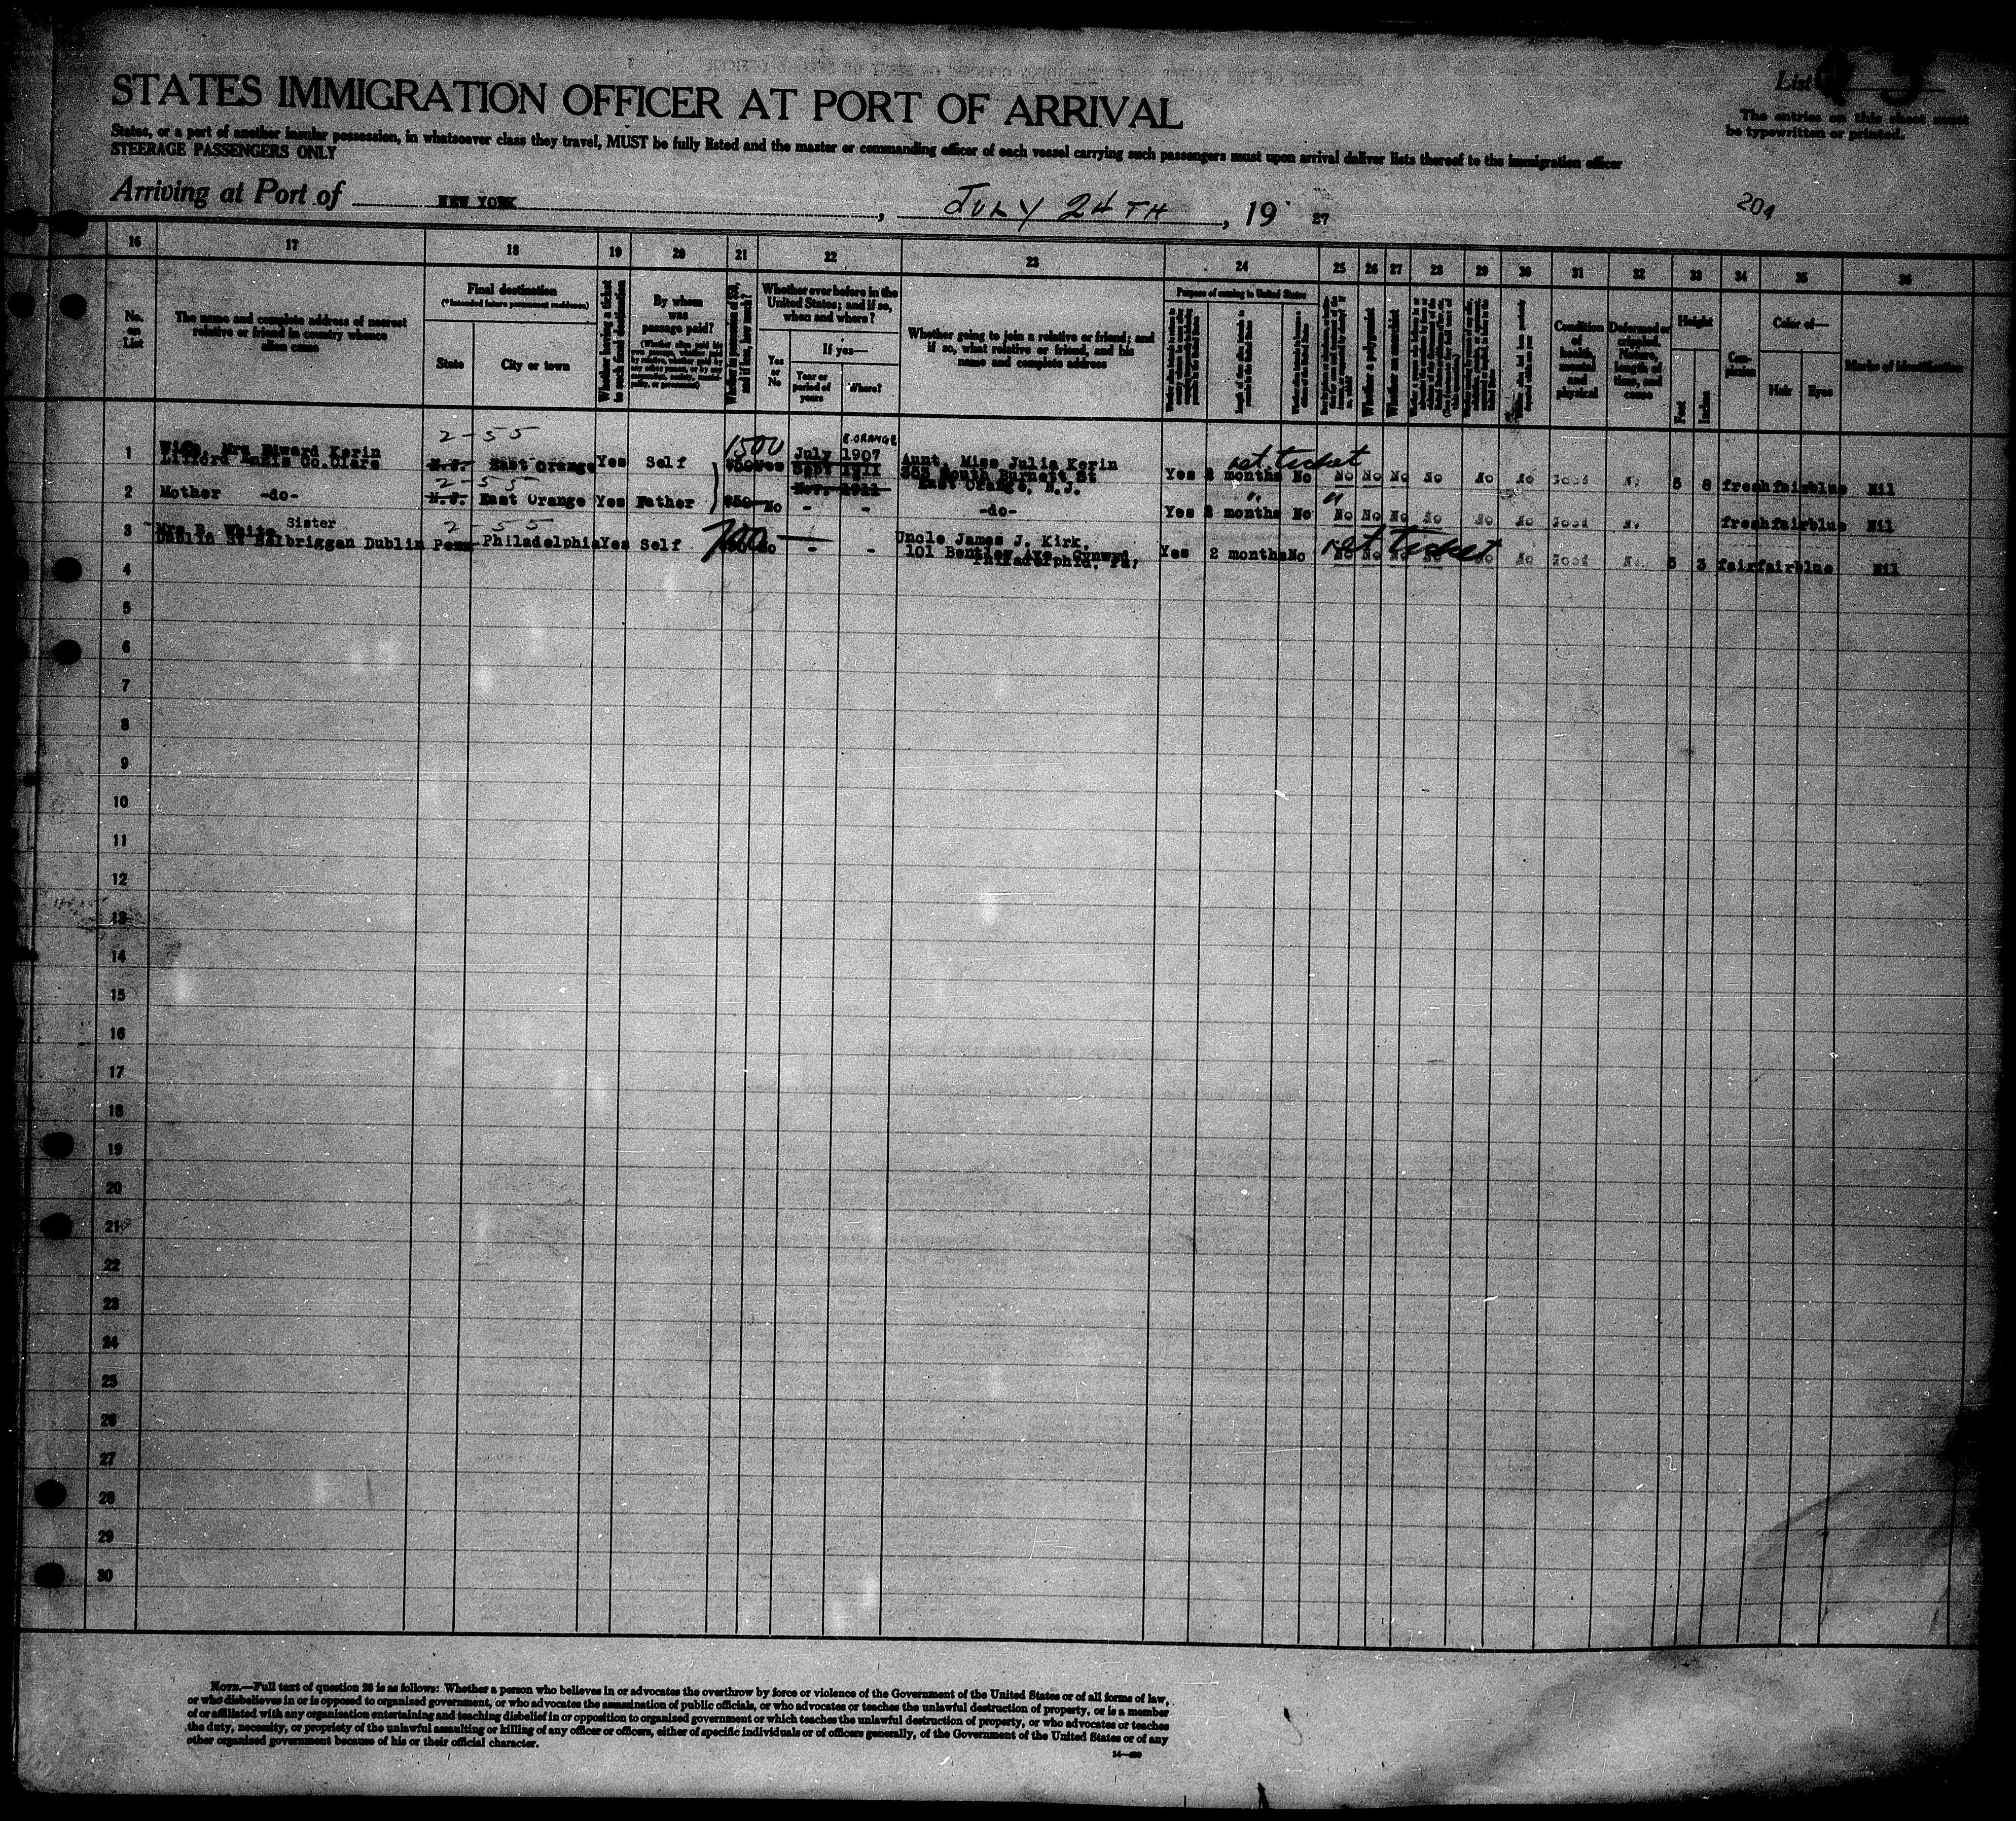 List
STATES IMMIGRATION OFFICER AT PORT OF ARRIVAL
The entries on this sheet must
be typewritten or printed.
States, or a port of another insular possession, in whatsoever class they travel, MUST be fully listed and the master or commanding officer of each vessel carrying such passengers must upon arrival deliver lists thereof to the immigration officer
STEERAGE PASSENGERS ONLY
Arriving at Port of NEW YORK, JULY 24TH, 19 27
204
16 17 18 19 20 21 22 23 24 25 26 27 28 29 30 31 32 33 34 35 36
No. on List
The name and complete address of nearest
relative or friend in country whence
alien came
Final destination
(*Intended future permanent residence)
State
City or town
Whether having a ticket
to such final destination
By whom
was
passage paid?
Whether possessed of $50,
and if less, how much?
Whether ever before in the
United States; and if so,
when and where?
Yes or No
If yes—
Year or
period of
years
Where?
Whether going to join a relative or friend; and
if so, what relative or friend, and his
name and complete address
Purpose of coming to United States
Whether a polygamist
Whether an anarchist
Condition
of
health,
mental
and
physical
Deformed or
crippled.
Nature,
length of
time, and
cause
Height
Feet
Inches
Com-
plexion
Color of—
Hair
Eyes
Marks of identification
2-55
1500
E. ORANGE
ret. ticket
1 Wife, Mrs Edward Kerin
Lifford Ennis Co.Clare
N.J. East Orange Yes Self $50 Yes
July 1907
Sept 1911
Nov. 1911
Aunt, Miss Julia Kerin
352 South Burnett St
East Orange, N.J.
Yes 2 months No No No No No No No Good No 5 8 fresh fair blue Nil
2-55
2 Mother -do- N.J. East Orange Yes Father $50 No - - -do- Yes 2 months No No No No No No No Good No fresh fair blue Nil
" "
2-55
3 Sister
Mrs B. White
Dublin St Balbriggan Dublin
Penn Philadelphia Yes Self 700 $50 No - -
Uncle James J. Kirk,
101 Bentley Ave. Cynwyd
Philadelphia, Pa,
Yes 2 months No ret ticket No No No No No No Good No 5 3 fair fair blue Nil
4
5
6
7
8
9
10
11
12
13
14
15
16
17
18
19
20
21
22
23
24
25
26
27
28
29
30
NOTE.—Full text of question 28 is as follows: Whether a person who believes in or advocates the overthrow by force or violence of the Government of the United States or of all forms of law,
or who disbelieves in or is opposed to organized government, or who advocates the assassination of public officials, or who advocates or teaches the unlawful destruction of property, or is a member
of or affiliated with any organization entertaining and teaching disbelief in or opposition to organized government or which teaches the unlawful destruction of property, or who advocates or teaches
the duty, necessity, or propriety of the unlawful assaulting or killing of any officer or officers, either of specific individuals or of officers generally, of the Government of the United States or of any
other organized government because of his or their official character.